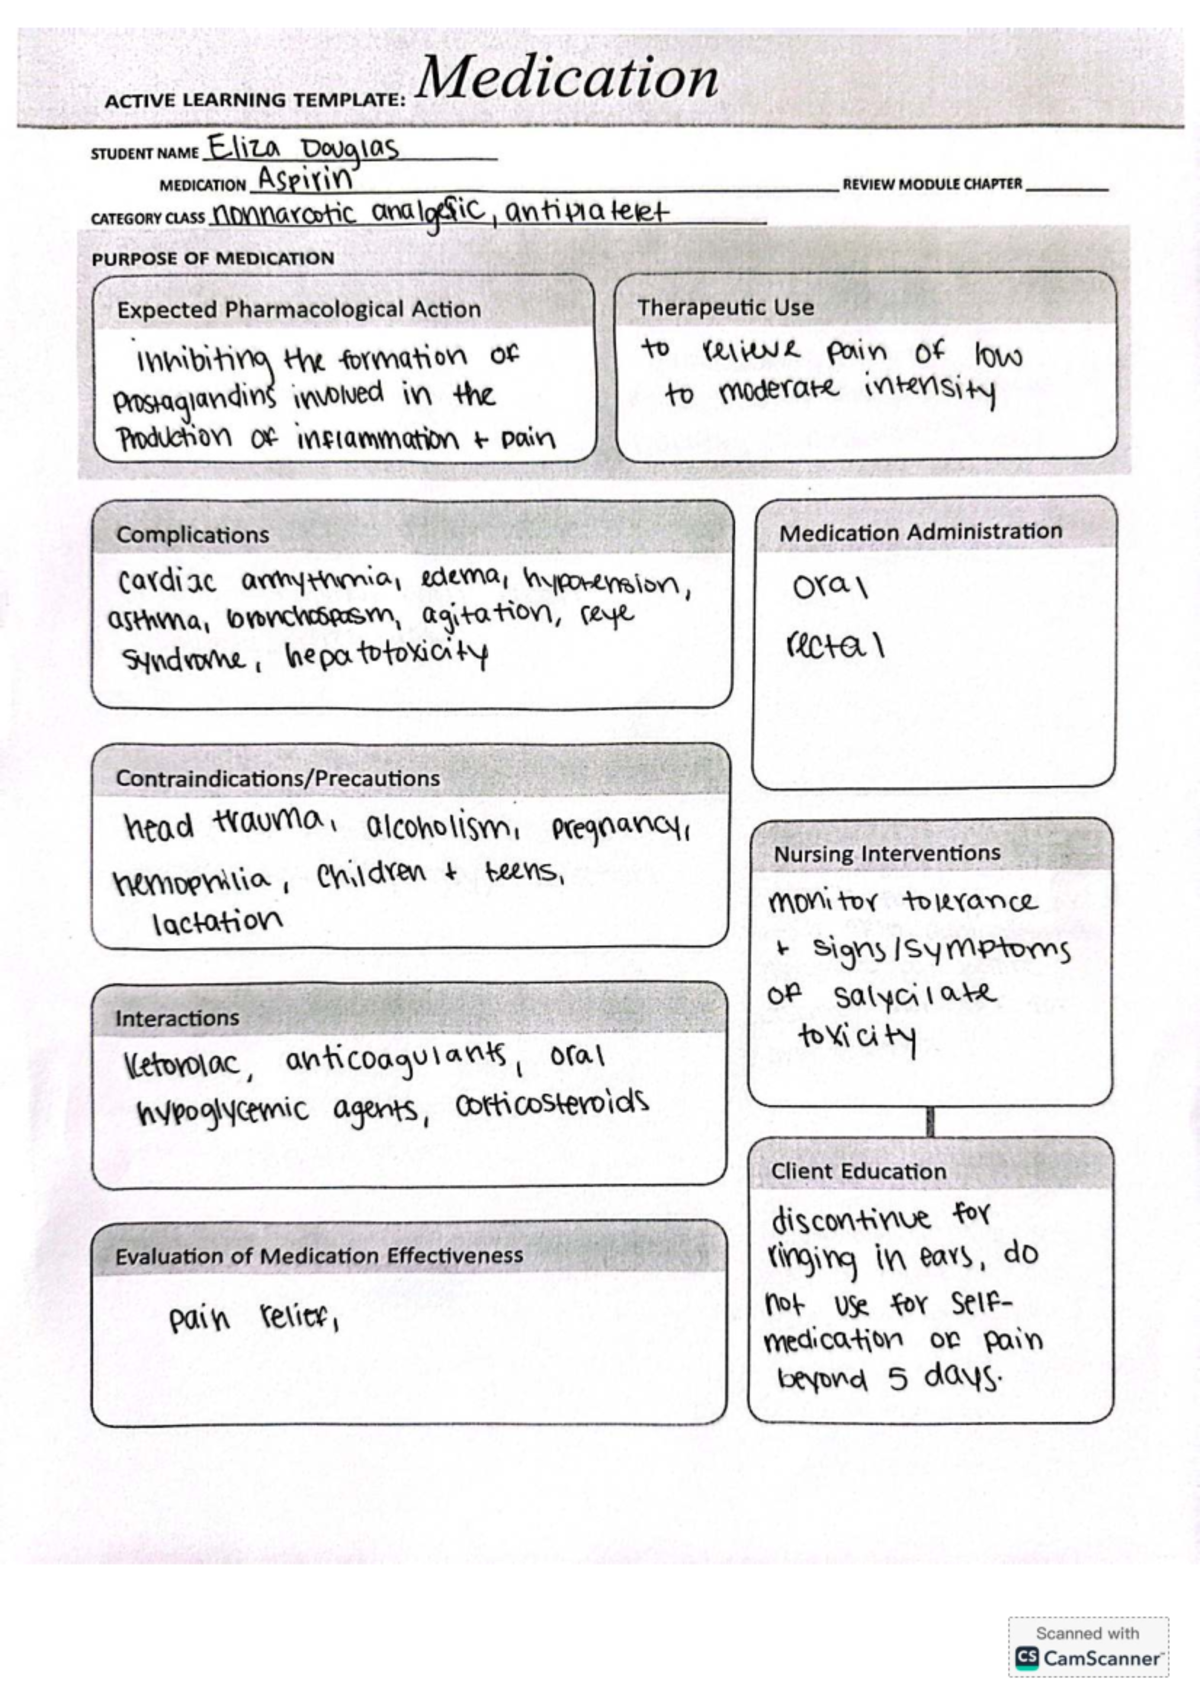 ACTIVE LEARNING TEMPLATE: Medication
STUDENT NAME Eliza Douglas
MEDICATION Aspirin REVIEW MODULE CHAPTER
CATEGORY CLASS nonnarcotic analgesic, antiplatelet
PURPOSE OF MEDICATION
Expected Pharmacological Action
inhibiting the formation of
prostaglandins involved in the
Production of inflammation + pain
Therapeutic Use
to relieve pain of low
to moderate intensity
Complications
cardiac arrhythmia, edema, hypotension,
asthma, bronchospasm, agitation, reye
syndrome, hepatotoxicity
Medication Administration
oral
rectal
Contraindications/Precautions
head trauma, alcoholism, pregnancy,
hemophilia, children + teens,
lactation
Nursing Interventions
monitor tolerance
+ signs/symptoms
of salycilate
toxicity
Interactions
Ketorolac, anticoagulants, oral
hypoglycemic agents, corticosteroids
Client Education
discontinue for
ringing in ears, do
not use for self-
medication of pain
beyond 5 days.
Evaluation of Medication Effectiveness
pain relief,
Scanned with
CS CamScanner